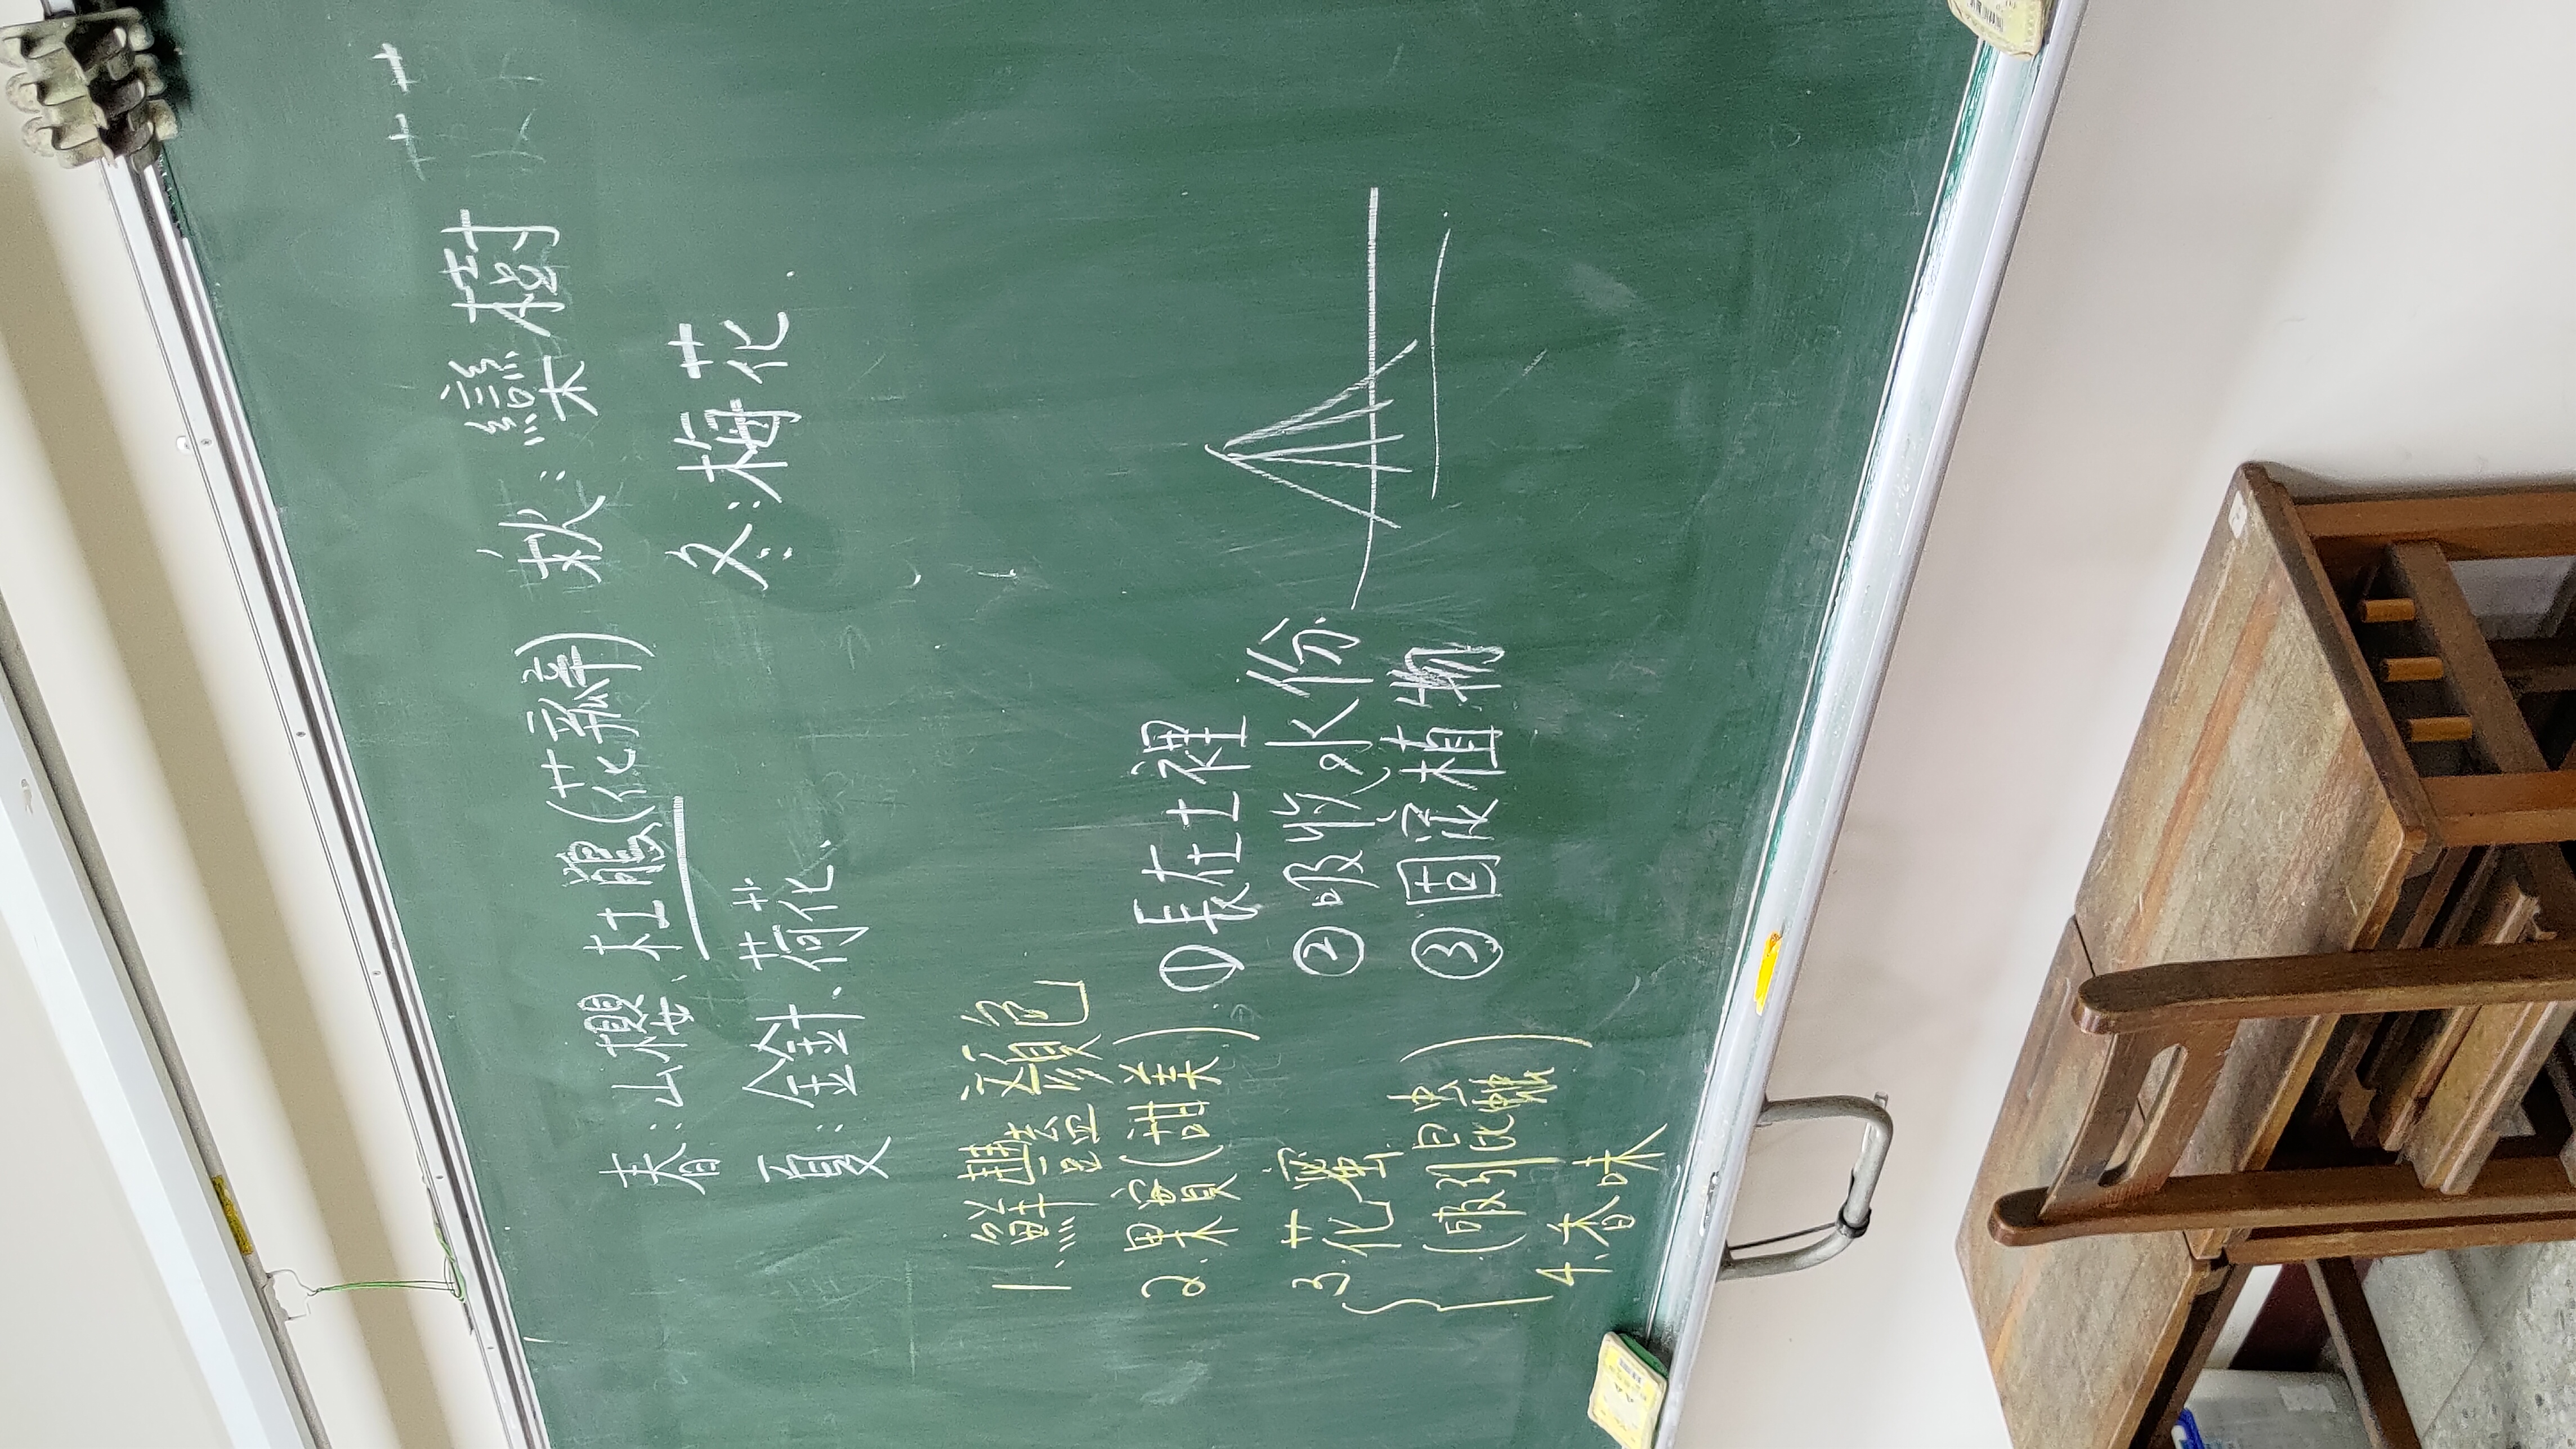 春：山櫻、杜鵑(花瓣)
秋：欒樹
夏：金針、荷花.
冬：梅花.
1.鮮豔顏色
2.果實(甜美)
3.花蜜
(吸引昆蟲)
4.香味
①長在土裡
②吸收水份.
③固定植物